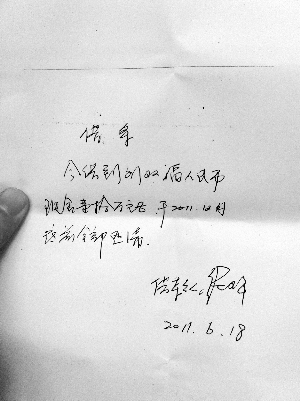 借条
今借到刘双福人民币
现金壹拾万元正 于2011.12月
底前全部还清.
借款人:
2011.6.18